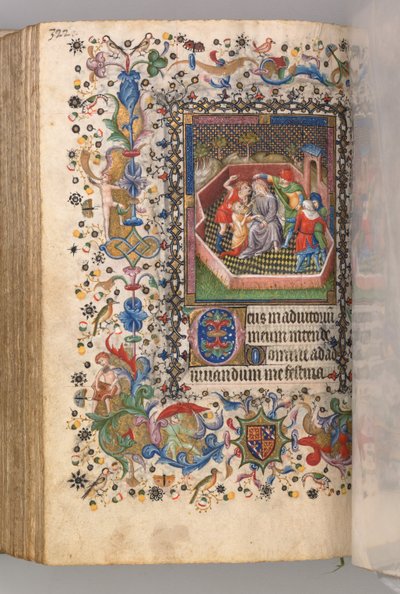 322
Deus in adiutoriu
meum intende
Domine ad ad
iuuandum me festina